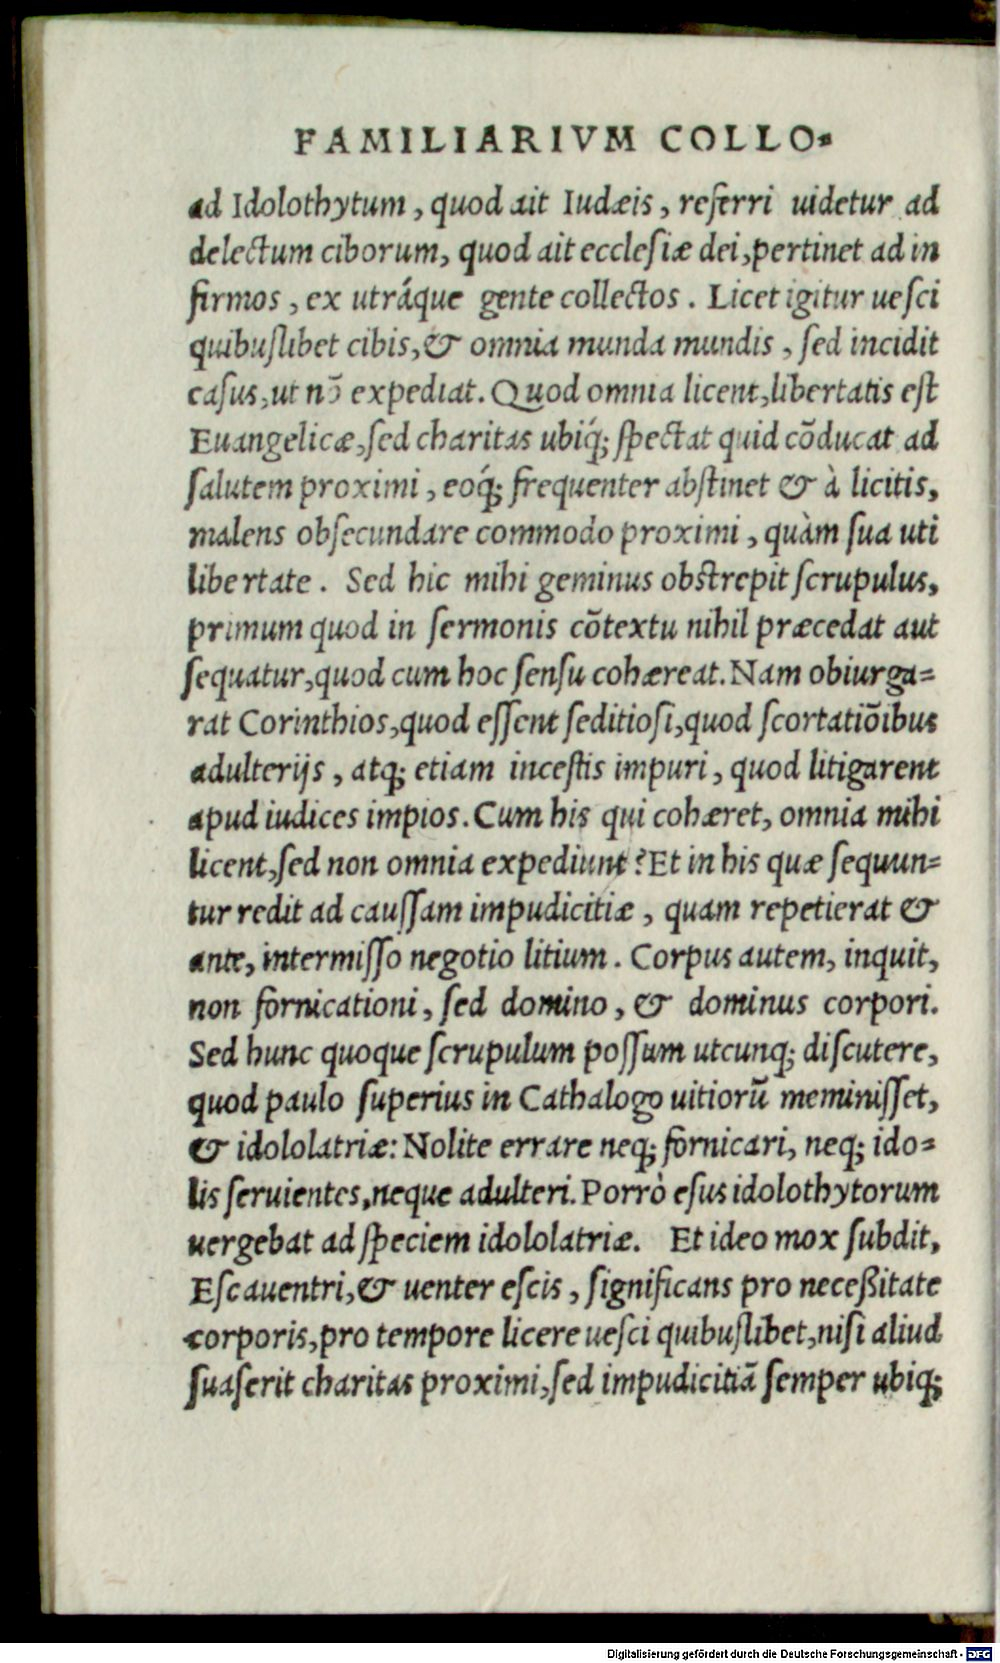 FAMILIARIVM COLLO-
ad Idolothytum, quod ait Iudæis, referri uidetur ad
delectum ciborum, quod ait ecclesiæ dei, pertinet ad in
firmos, ex utráque gente collectos. Licet igitur uesci
quibuslibet cibis, & omnia munda mundis, sed incidit
casus, ut nō expediat. Quod omnia licent, libertatis est
Euangelicæ, sed charitas ubiq́; spectat quid cōducat ad
salutem proximi, eoq́; frequenter abstinet & à licitis,
malens obsecundare commodo proximi, quàm sua uti
libertate. Sed hic mihi geminus obstrepit scrupulus,
primum quod in sermonis cōtextu nihil præcedat aut
sequatur, quod cum hoc sensu cohæreat. Nam obiurga=
rat Corinthios, quod essent seditiosi, quod scortatiōibus
adulterijs, atq; etiam incestis impuri, quod litigarent
apud iudices impios. Cum his qui cohæret, omnia mihi
licent, sed non omnia expediunt? Et in his quæ sequun=
tur redit ad caussam impudicitiæ, quam repetierat &
ante, intermisso negotio litium. Corpus autem, inquit,
non fornicationi, sed domino, & dominus corpori.
Sed hunc quoque scrupulum possum utcunq; discutere,
quod paulo superius in Cathalogo uitiorū meminisset,
& idololatriæ: Nolite errare neq; fornicari, neq; ido=
lis seruientes, neque adulteri. Porrò esus idolothytorum
uergebat ad speciem idololatriæ. Et ideo mox subdit,
Esca uentri, & uenter escis, significans pro neceßitate
corporis, pro tempore licere uesci quibuslibet, nisi aliud
suaserit charitas proximi, sed impudicitiā semper ubiq;
Digitalisierung gefördert durch die Deutsche Forschungsgemeinschaft - DFG